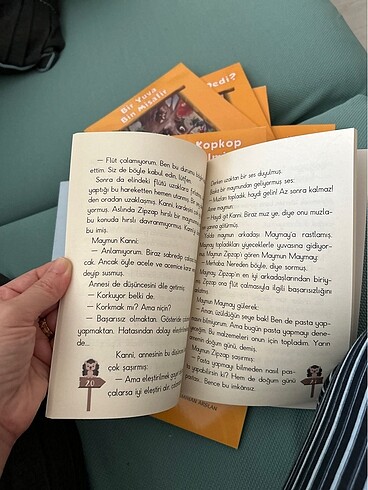 Bir Yuva
Bin Misafir
Dedi?
Kopkop
— Flüt çalamıyorum. Ben bu durumu
ettim. Siz de böyle kabul edin, lütfen.
Sonra da elindeki flütü uzaklara fırlattı.
yaptığı bu hareketten hemen utanmış. Bir
den oradan uzaklaşmış. Kanni, kardeşini
yormuş. Aslında Zıpzap hırslı bir maymun
bu konuda hırslı davranmıyormuş. Kanni'y
bu imiş.
Maymun Kanni:
— Anlamıyorum. Biraz sabredip çalışsa
cak. Ancak öyle acele ve acemice karar
deyip susmuş.
Annesi de düşüncesini dile getirmiş:
— Korkuyor belki de.
— Korkmak mı? Ama niçin?
— Başarısız olmaktan. Gösteride
yapmaktan. Hatasından dolayı eleştirilmek
de...
Kanni, annesinin bu düşüncesine
çok şaşırmış:
— Ama eleştirilmek
çalarsa iyi eleştiri alır,
20
Derken uzaktan bir ses duyulmuş.
Başka bir maymundan geliyormuş ses:
— Muzları topladık, haydi gelin! Az sonra kalmaz!
maymun:
— Haydi git Kanni. Biraz muz ye, diyo onu muzla-
yanına götürmüş.
Yolda maymun arkadaşı Maymay'a rastlamış.
Maymay topladıkları yiyeceklerle yuvasına gidiyor-
Maymun Zıpzap'ı gören Maymun Maymay:
— Merhaba. Nereden böyle, diye sormuş.
Maymay, Zıpzap'ın en iyi arkadaşlarından biriy-
Zıpzap ona flüt çalmasıyla ilgili başarısızlığını
Maymun Maymay gülerek:
— Aman, üzüldüğün şeye bak! Ben de pasta yap-
bilmiyorum. Ama bugün pasta yapmayı dene-
ceğim. Bu malzemeleri onun için topladım. Yarın
annemin doğum günü, demiş.
Maymun Zıpzap şaşırmış:
— Pasta yapmayı bilmeden nasıl pas-
ta yapabilirsin ki? Hem de doğum günü
pastası. Bence bu imkânsız.